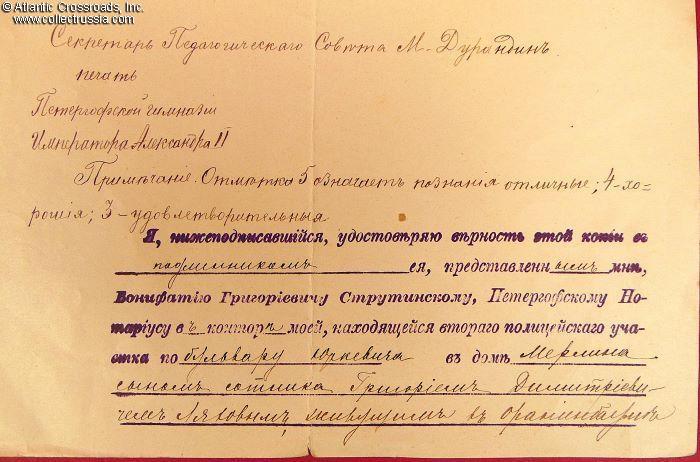 © Atlantic Crossroads, Inc.
www.collectrussia.com
Секретарь Педагогическаго Совѣта М. Дурандинъ.
печать
Петергофской гимназіи
Императора Александра II
Примѣчаніе. Отмѣтка 5 означаетъ познанія отличные; 4-хо=
рошія; 3-удовлетворительныя
Я, нижеподписавшійся, удостовѣряю вѣрность этой копіи съ
подлинникомъ ея, представленнымъ мнѣ,
Бонифатію Григоріевичу Струтинскому, Петергофскому Но-
таріусу въ конторѣ моей, находящейся втораго полицейскаго уча-
стка по бульвару Юркевича въ домѣ Мерлина
сыномъ сотника Григоріемъ Димитріеви-
чемъ Ляховымъ, живущимъ въ Ораніенбаумѣ